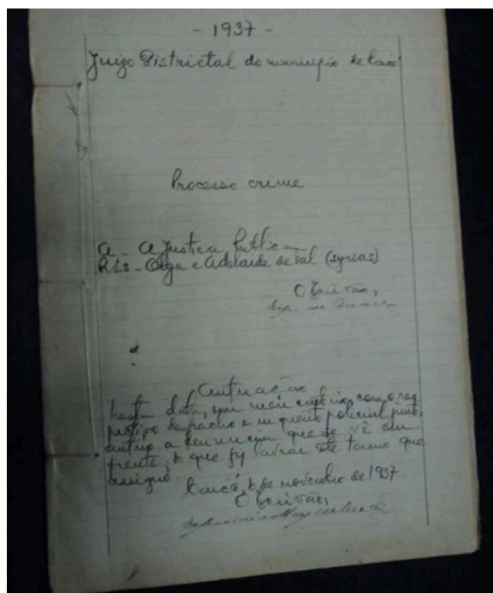 - 1937 -
Juizo Districtal do municipio de
Processo crime
A - A Justiça Publica
Rés - Olga e Adelaide de tal (syrias)
O Escrivão,
Autuação
Nesta data, em meu cartorio, com o
despacho e inquerito policial
autúo a denuncia que se vê em
frente, do que fiz lavrar este termo que
assigno.
6 de novembro de 1937
O Escrivão,